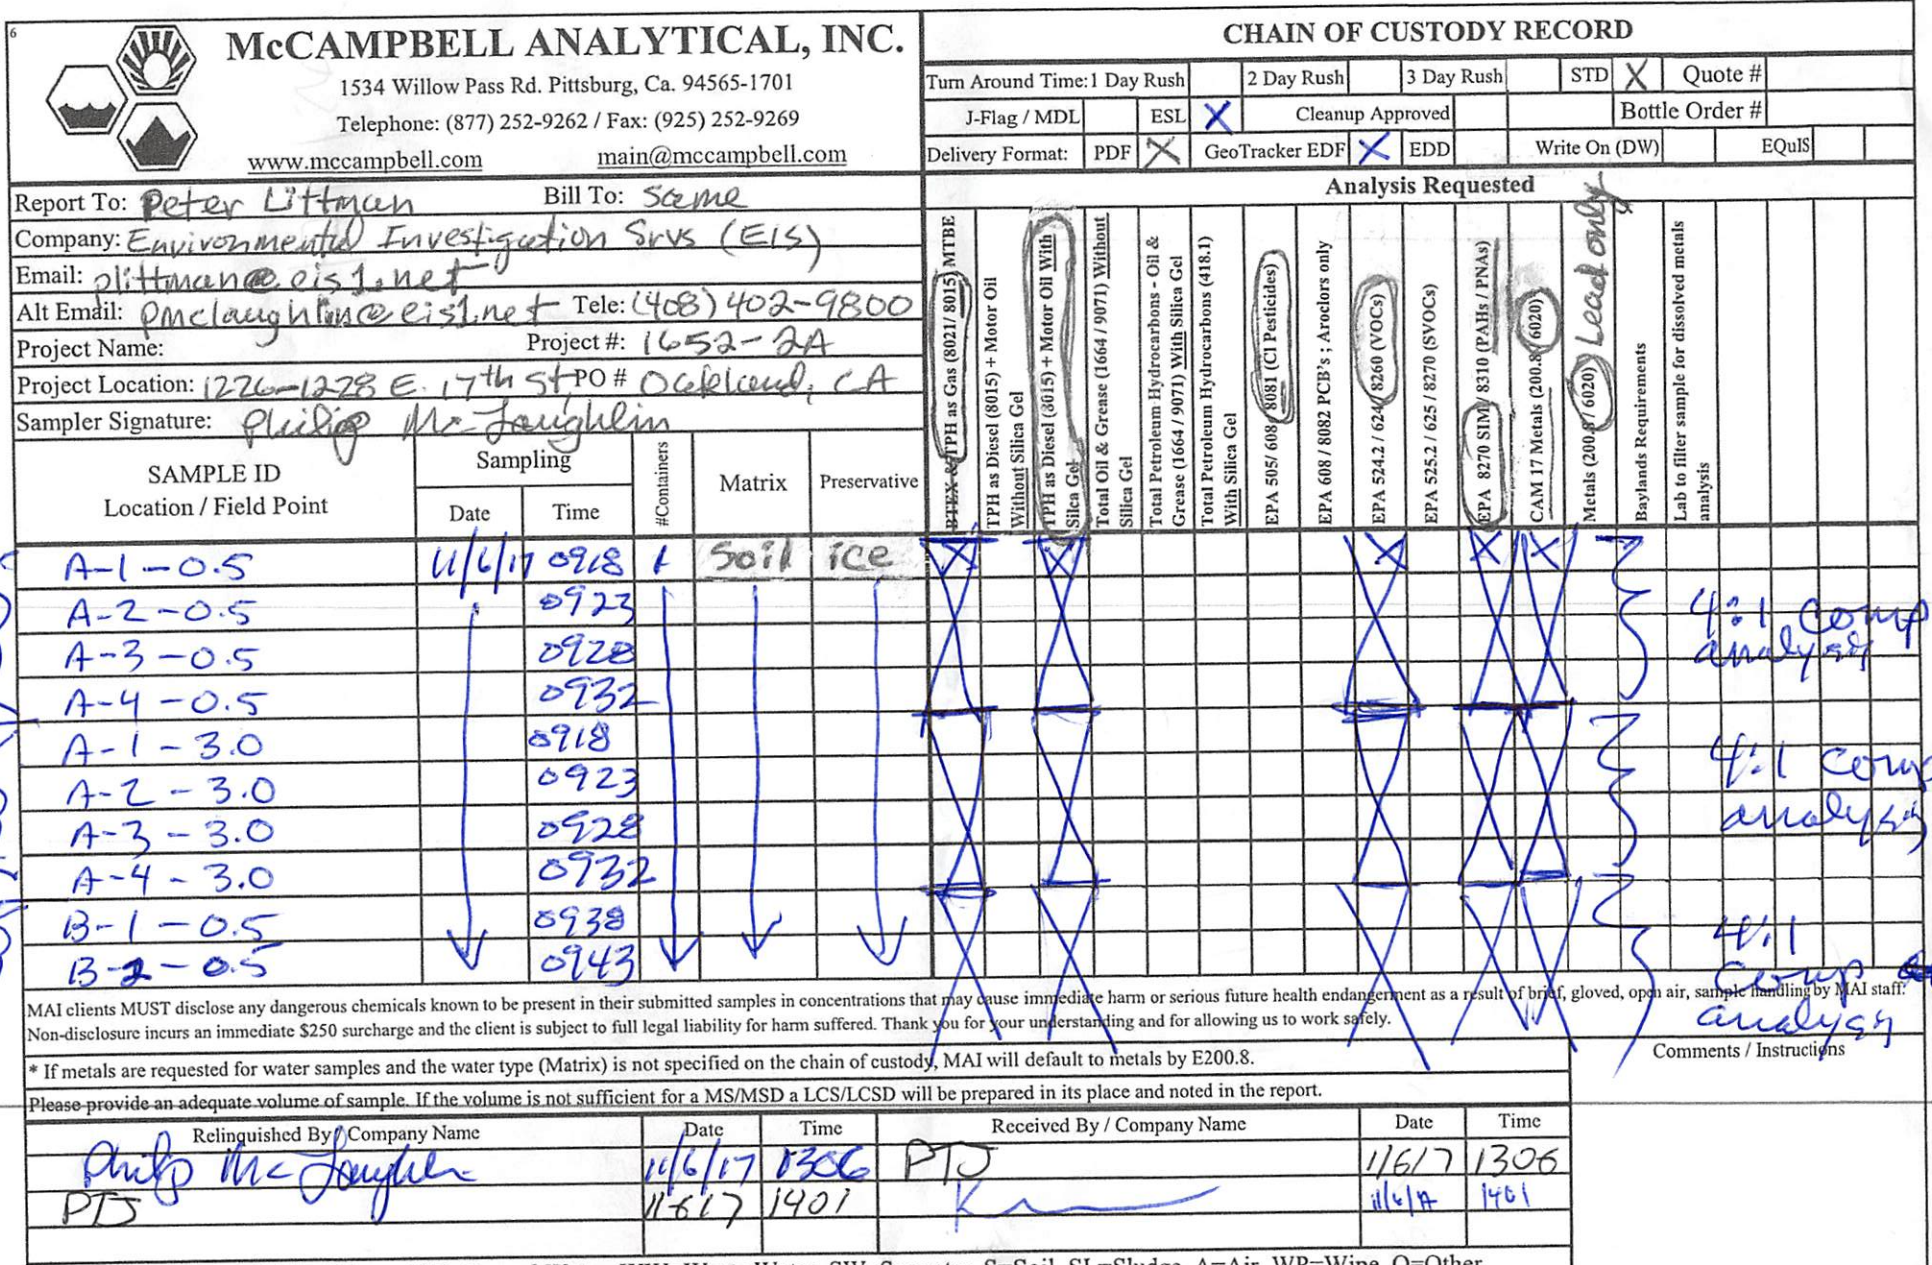 6
McCAMPBELL ANALYTICAL, INC.
1534 Willow Pass Rd. Pittsburg, Ca. 94565-1701
Telephone: (877) 252-9262 / Fax: (925) 252-9269
www.mccampbell.com main@mccampbell.com
CHAIN OF CUSTODY RECORD
Turn Around Time:1 Day Rush 2 Day Rush 3 Day Rush STD X Quote #
J-Flag / MDL ESL X Cleanup Approved Bottle Order #
Delivery Format: PDF X GeoTracker EDF X EDD Write On (DW) EQuIS
Report To: Peter Littman Bill To: Same
Company: Environmental Investigation Srvs (EIS)
Email: plittman@eis1.net
Alt Email: pmclaughlin@eis1.net Tele: (408) 402-9800
Project Name: Project #: 1652-2A
Project Location: 1226-1228 E. 17th St, PO # Oakland, CA
Sampler Signature: Philip McLaughlin
Analysis Requested
BTEX & TPH as Gas (8021/ 8015) MTBE
TPH as Diesel (8015) + Motor Oil
Without Silica Gel
TPH as Diesel (8015) + Motor Oil With
Silica Gel
Total Oil & Grease (1664 / 9071) Without
Silica Gel
Total Petroleum Hydrocarbons - Oil &
Grease (1664 / 9071) With Silica Gel
Total Petroleum Hydrocarbons (418.1)
With Silica Gel
EPA 505/ 608/ 8081 (Cl Pesticides)
EPA 608 / 8082 PCB's ; Aroclors only
EPA 524.2 / 624 / 8260 (VOCs)
EPA 525.2 / 625 / 8270 (SVOCs)
EPA 8270 SIM / 8310 (PAHs / PNAs)
CAM 17 Metals (200.8 / 6020)
Metals (200.8 / 6020) Lead only
Baylands Requirements
Lab to filter sample for dissolved metals
analysis
SAMPLE ID
Location / Field Point
Sampling
Date Time
#Containers
Matrix
Preservative
A-1-0.5 11/6/17 0918 1 Soil ice X X X X X
A-2-0.5 0923
A-3-0.5 0928
A-4-0.5 0932
4:1 comp
analysis
A-1-3.0 0918
A-2-3.0 0923
A-3-3.0 0928
A-4-3.0 0932
4:1 comp
analysis
B-1-0.5 0938
B-2-0.5 0943
4:1
comp
analysis
MAI clients MUST disclose any dangerous chemicals known to be present in their submitted samples in concentrations that may cause immediate harm or serious future health endangerment as a result of brief, gloved, open air, sample handling by MAI staff.
Non-disclosure incurs an immediate $250 surcharge and the client is subject to full legal liability for harm suffered. Thank you for your understanding and for allowing us to work safely.
* If metals are requested for water samples and the water type (Matrix) is not specified on the chain of custody, MAI will default to metals by E200.8.
Comments / Instructions
Please provide an adequate volume of sample. If the volume is not sufficient for a MS/MSD a LCS/LCSD will be prepared in its place and noted in the report.
Relinquished By / Company Name Date Time Received By / Company Name Date Time
Philip McLaughlin 11/6/17 1306 PTJ 11/6/17 1306
PTJ 11/6/17 1401 11/6/17 1401